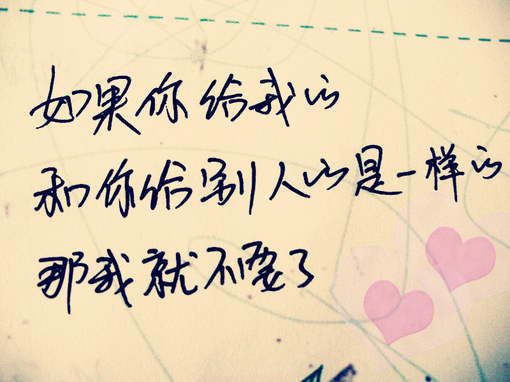 如果你给我的
和你给别人的是一样的
那我就不要了